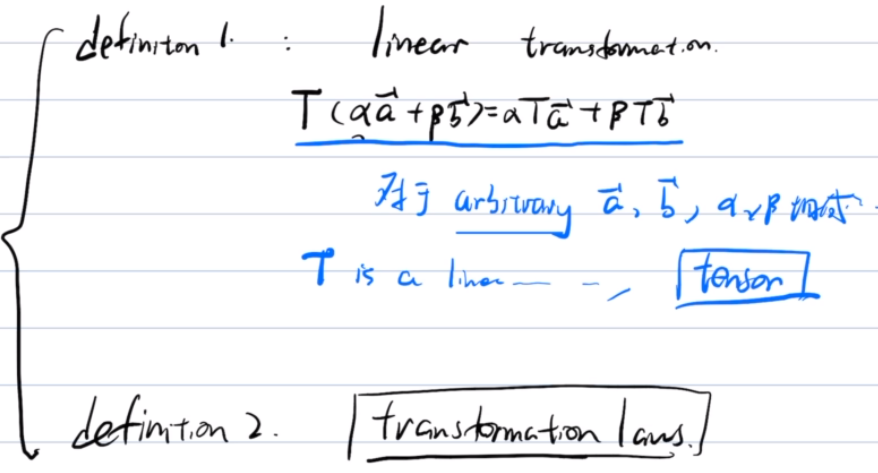 definiton 1. : linear transformation.
T(αa⃗ + βb⃗) = αTa⃗ + βTb⃗
对于 arbitrary a⃗, b⃗, α, β 均成
T is a linea — - , tensor
definition 2. transformation laws.